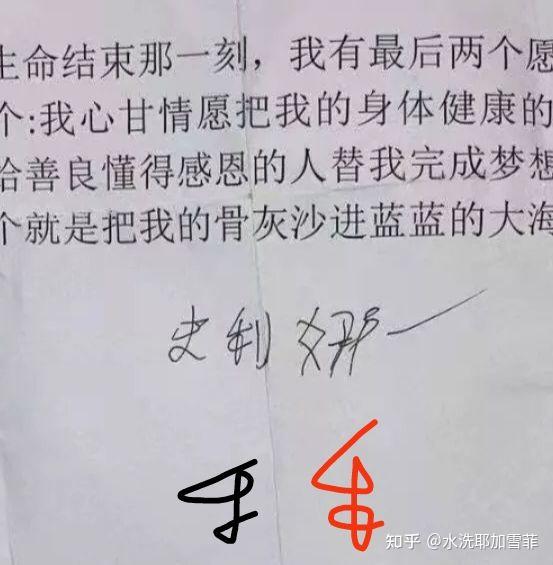 生命结束那一刻，我有最后两个愿
个:我心甘情愿把我的身体健康的
给善良懂得感恩的人替我完成梦想
个就是把我的骨灰沙进蓝蓝的大海
史利
知乎 @水洗耶加雪菲